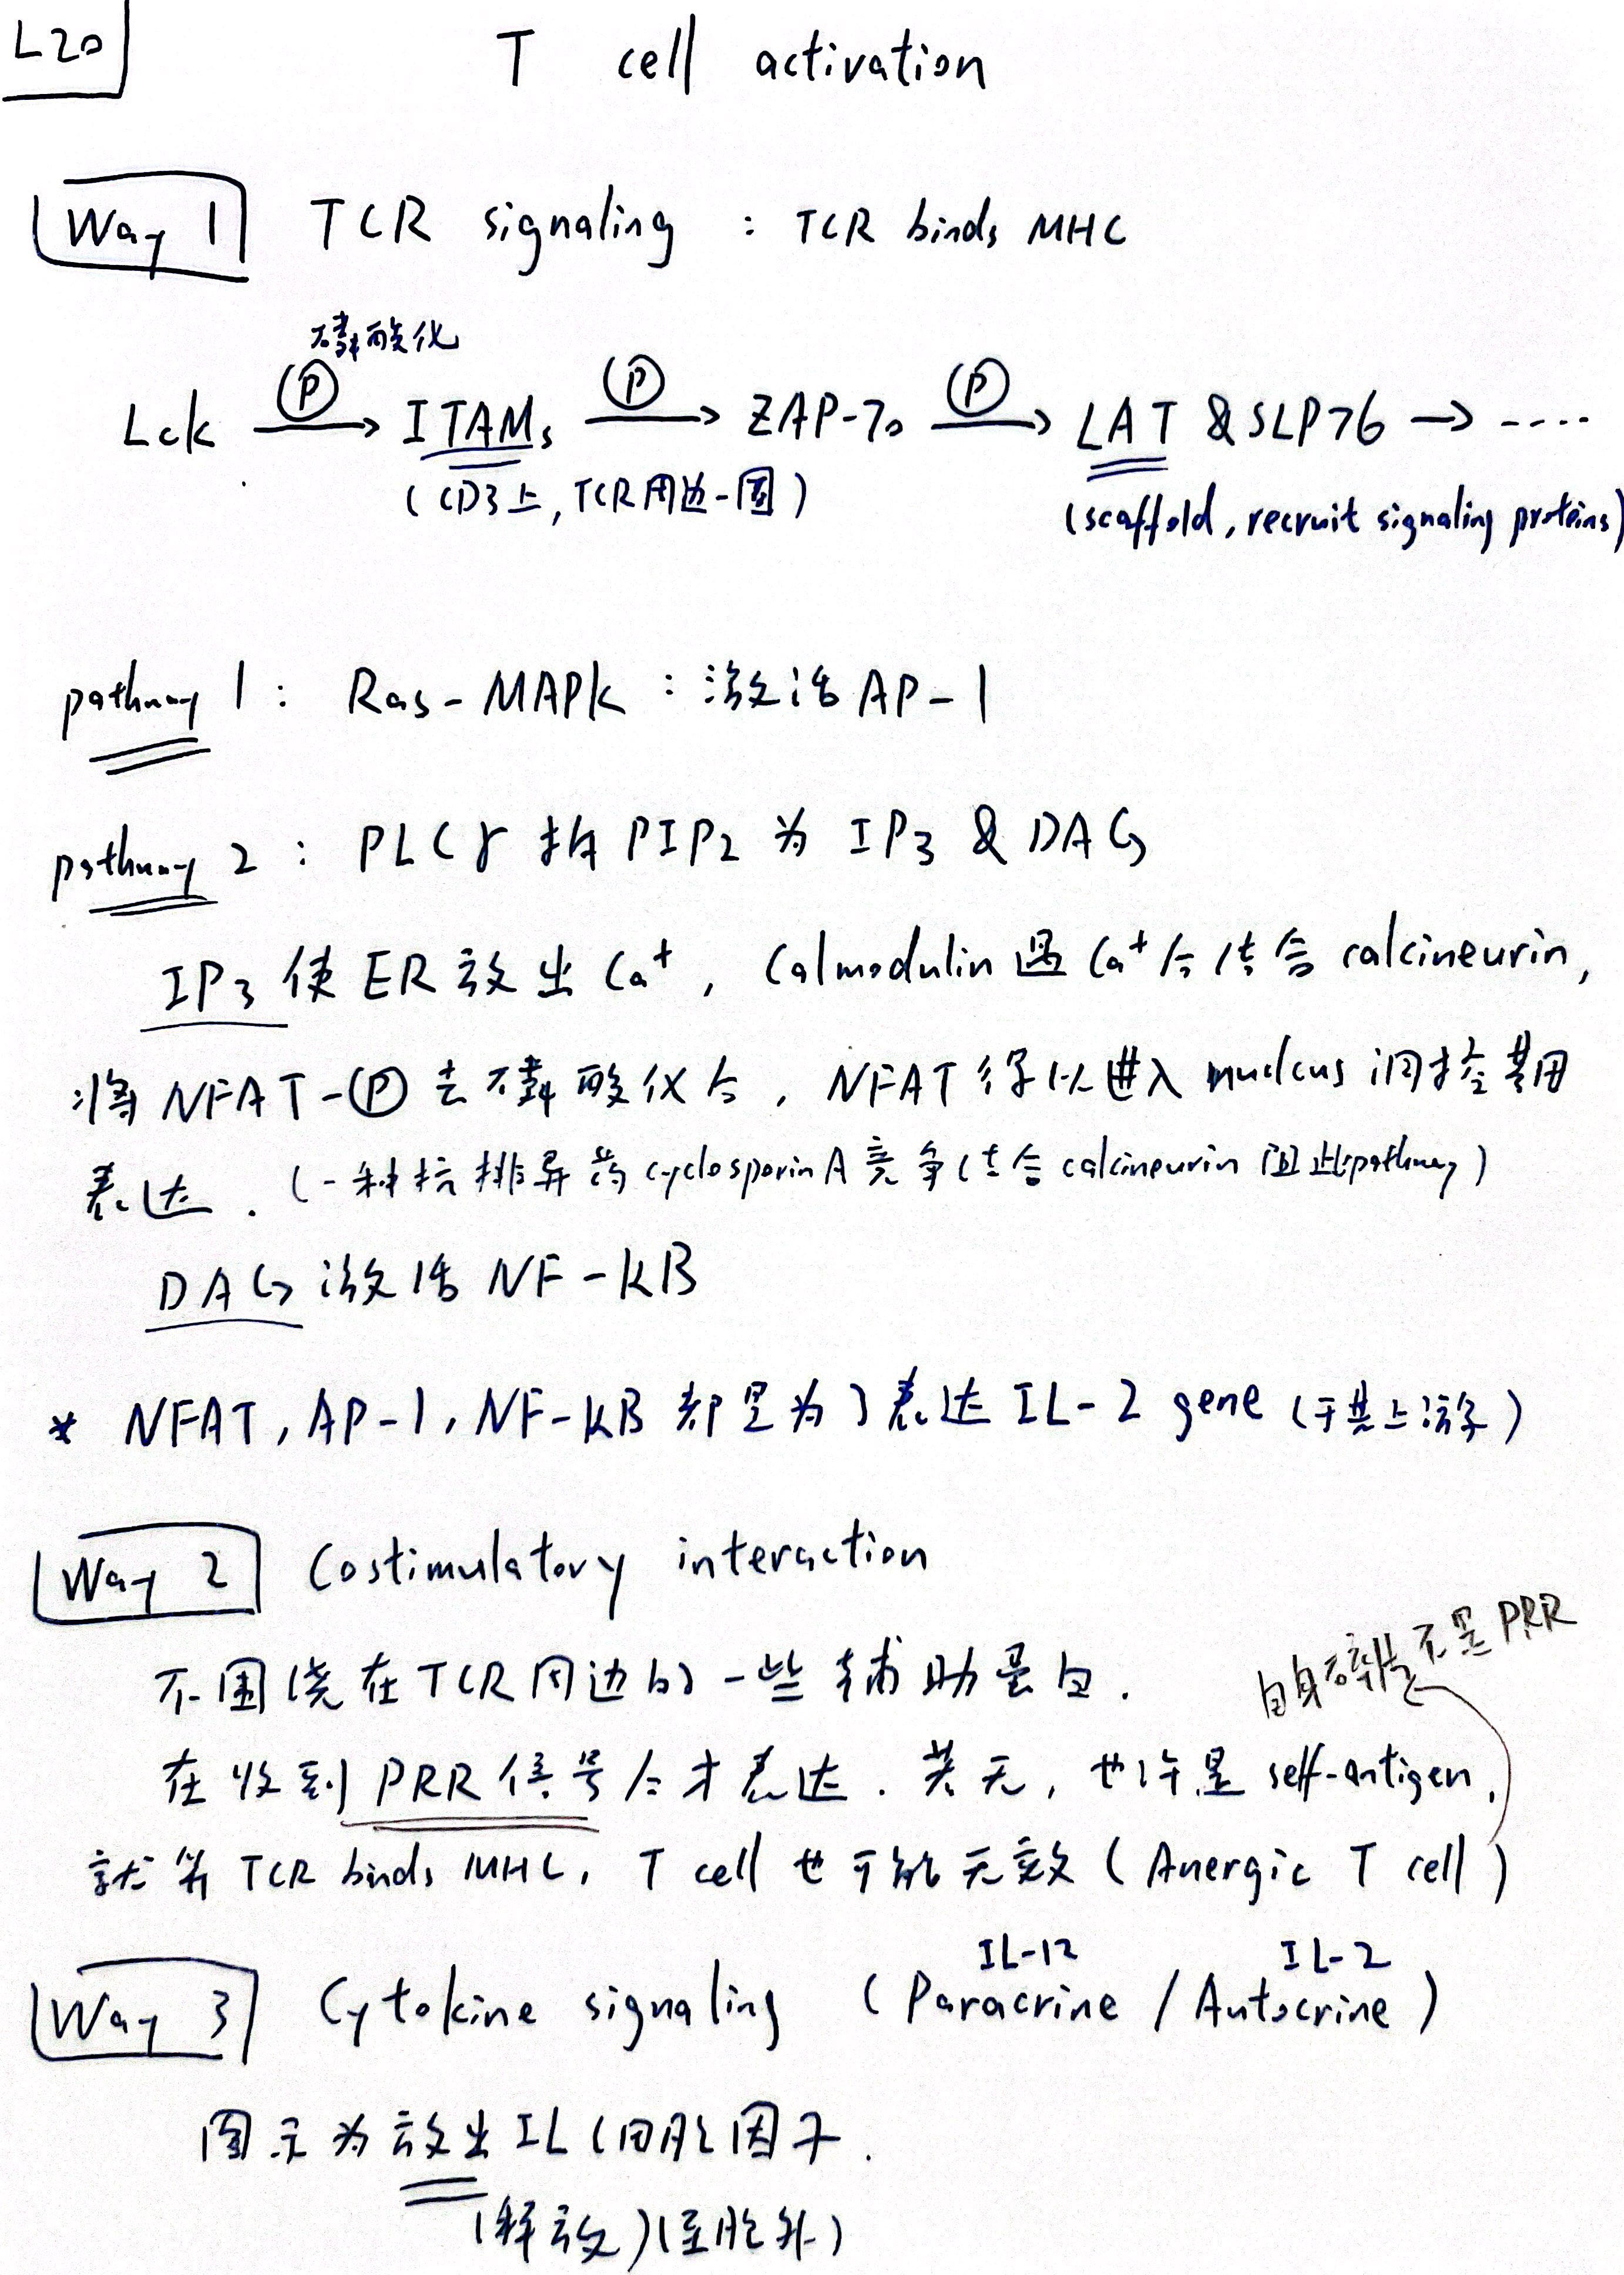 L20
T cell activation
Way 1 TCR signaling : TCR binds MHC
磷酸化
Lck Ⓟ→ ITAMs Ⓟ→ ZAP-70 Ⓟ→ LAT & SLP76 → ····
(CD3上, TCR周边一圈)
(scaffold, recruit signaling proteins)
pathway 1 : Ras-MAPK : 激活 AP-1
pathway 2 : PLCγ 拆 PIP2 为 IP3 & DAG
IP3 使 ER 放出 Ca+, Calmodulin 遇 Ca+ 后结合 calcineurin,
将 NFAT-Ⓟ 去磷酸化后, NFAT 得以进入 nucleus 调控基因
表达. (一种抗排异药 cyclosporin A 竞争结合 calcineurin 阻此pathway)
DAG 激活 NF-KB
* NFAT, AP-1, NF-KB 都是为了表达 IL-2 gene (于其上游)
Way 2 Costimulatory interaction
自身碎片不是PRR
不围绕在TCR周边的一些辅助蛋白.
在收到 PRR 信号后才表达. 若无, 也许是 self-antigen,
就算 TCR binds MHC, T cell 也可能无效 (Anergic T cell)
IL-12 IL-2
Way 3 Cytokine signaling (Paracrine / Autocrine)
图示为放出 IL 细胞因子.
(释放)(至胞外)